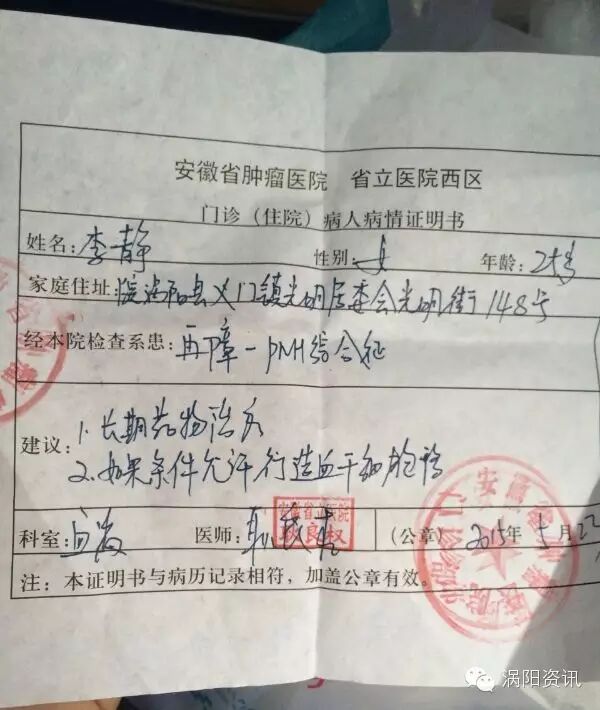 安徽省肿瘤医院 省立医院西区
门诊（住院）病人病情证明书
姓名：李静 性别：女 年龄：25岁
家庭住址：涡阳县义门镇光明居委会光明街148号
经本院检查系患：再障-PNH综合征
建议：1.长期药物治疗
2.如果条件允许行造血干细胞移
科室：血液 医师： （公章）2015年5月22
注：本证明书与病历记录相符，加盖公章有效。
涡阳资讯